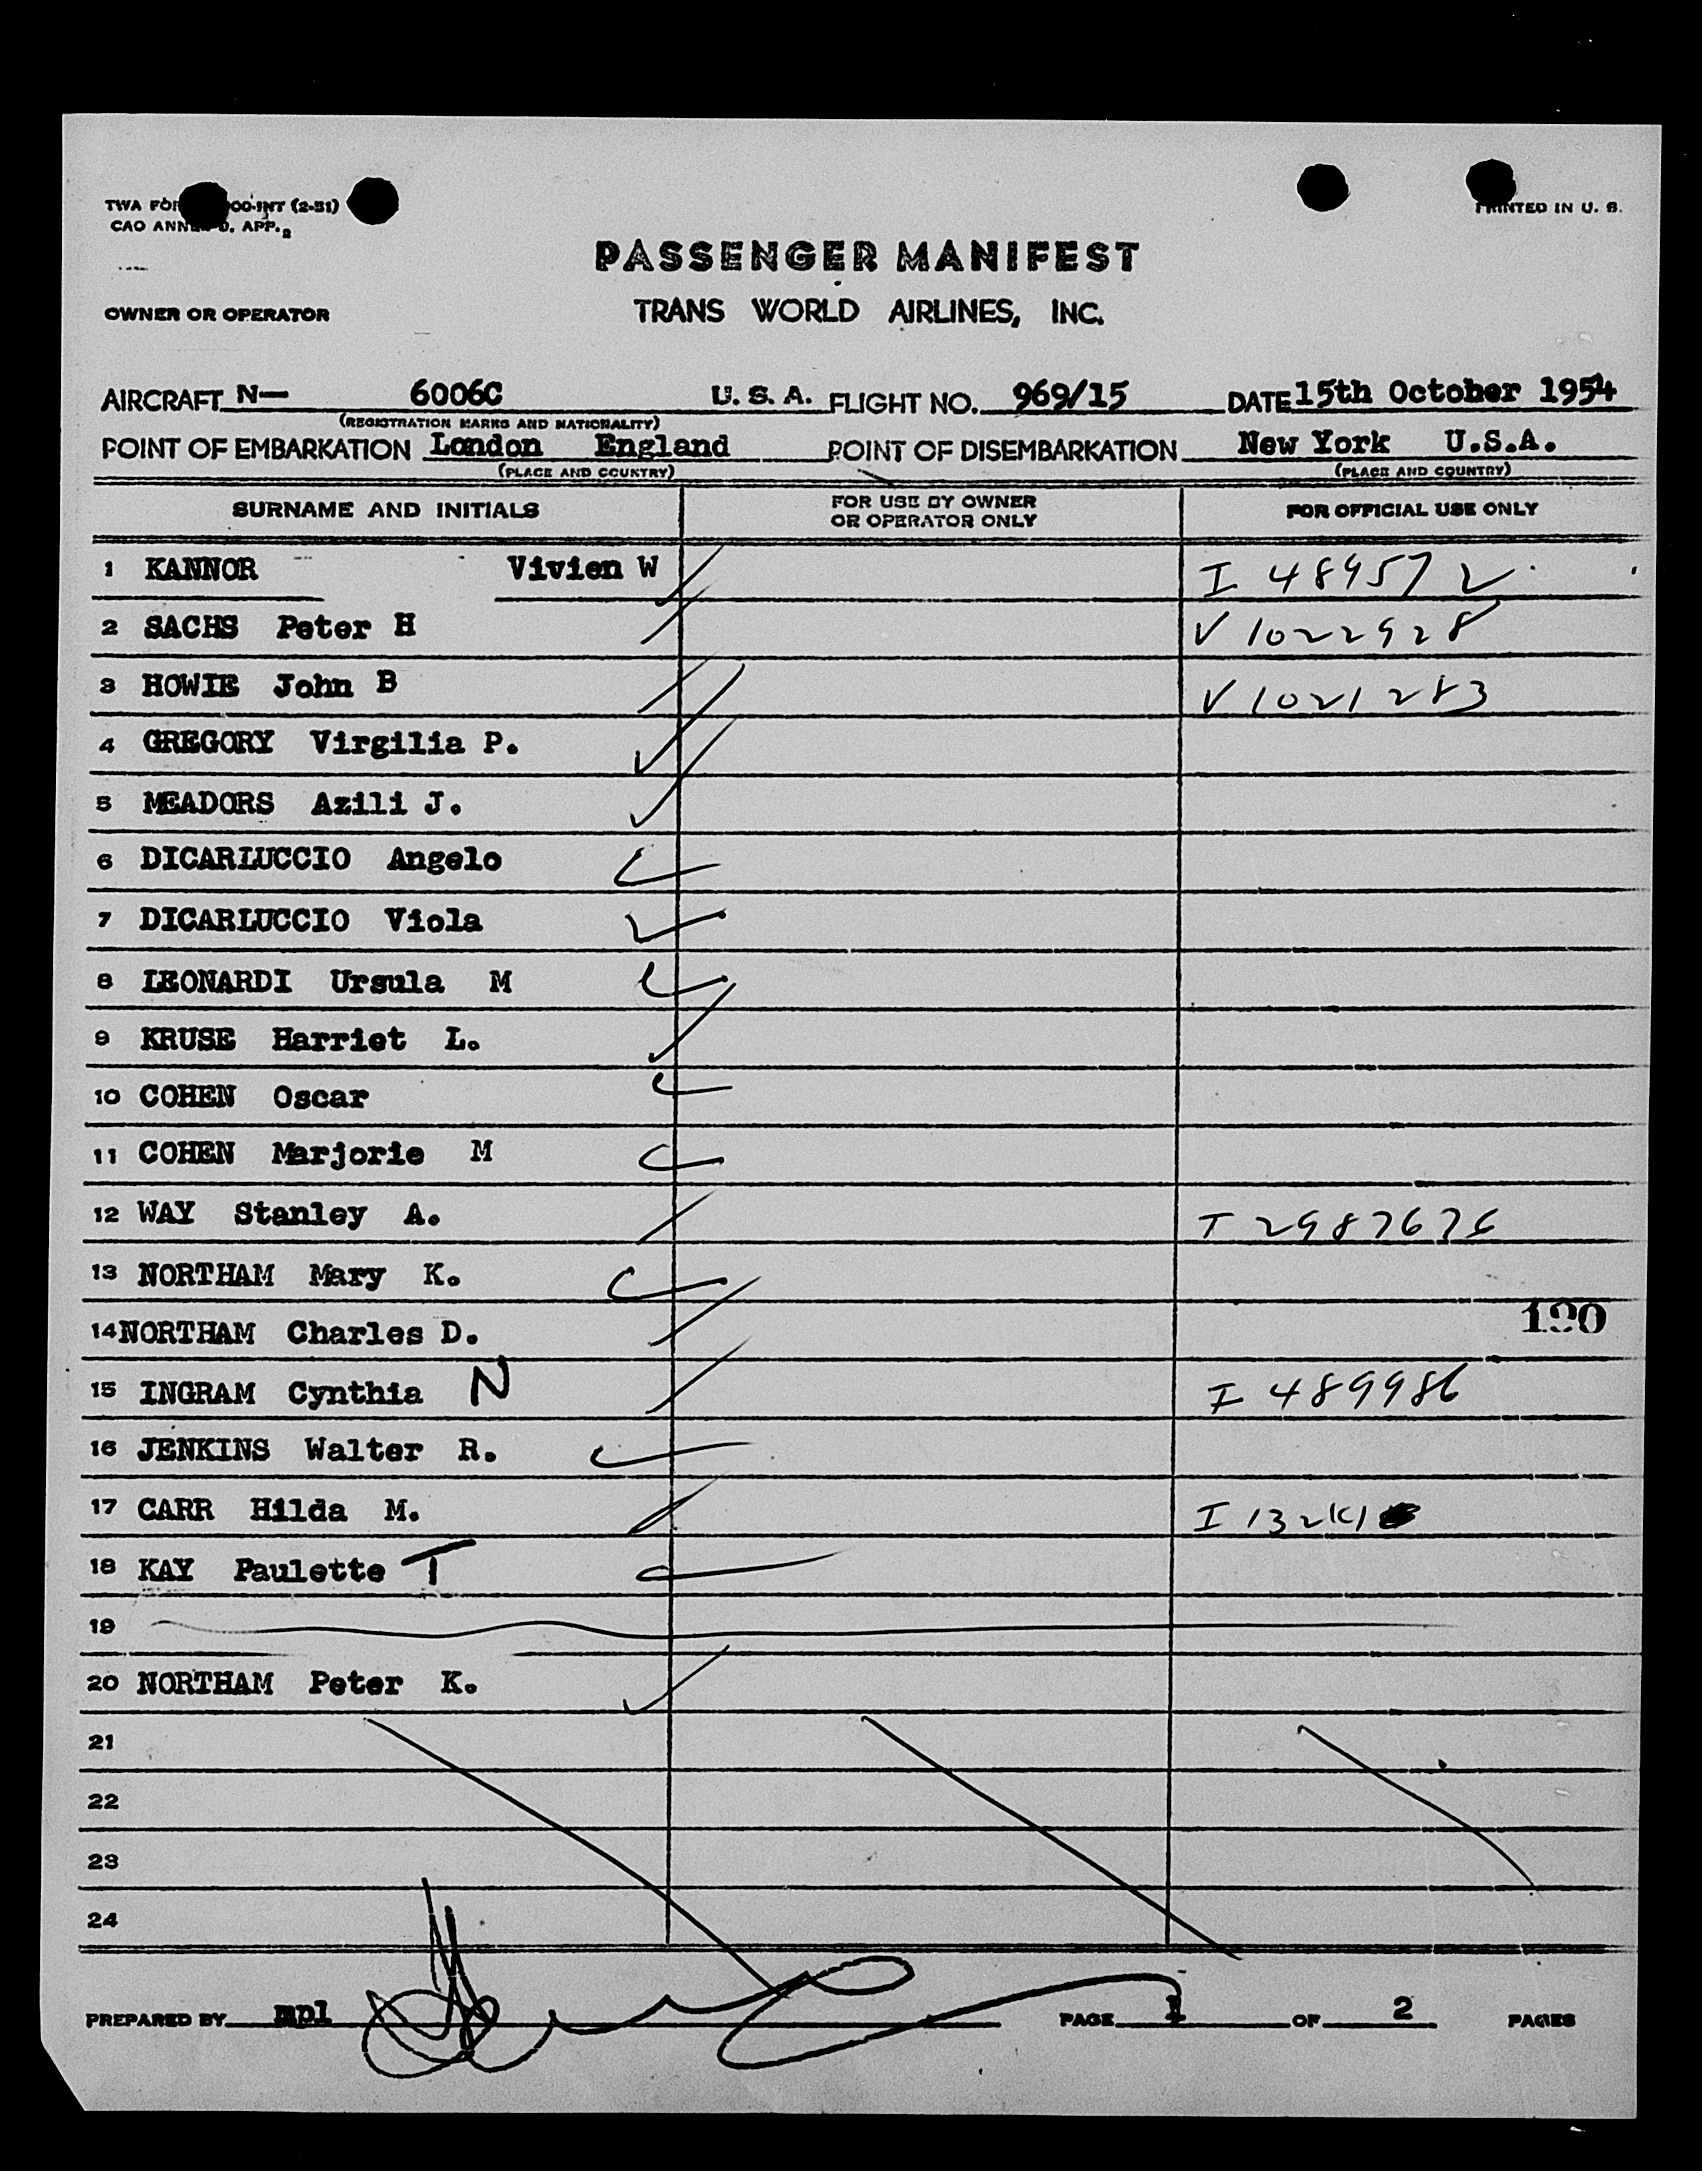 TWA FOR 00-INT (2-51)
CAO ANNE D, APP. 2
PRINTED IN U. S.
PASSENGER MANIFEST
OWNER OR OPERATOR
TRANS WORLD AIRLINES, INC.
AIRCRAFT N— 6006C U. S. A. FLIGHT NO. 969/15 DATE 15th October 1954
(REGISTRATION MARKS AND NATIONALITY)
POINT OF EMBARKATION London England POINT OF DISEMBARKATION New York U.S.A.
(PLACE AND COUNTRY) (PLACE AND COUNTRY)
SURNAME AND INITIALS FOR USE BY OWNER OR OPERATOR ONLY FOR OFFICIAL USE ONLY
1 KANNOR Vivien W I 48957
2 SACHS Peter H V 1022928
3 HOWIE John B V 1021283
4 GREGORY Virgilia P.
5 MEADORS Azili J.
6 DICARLUCCIO Angelo
7 DICARLUCCIO Viola
8 LEONARDI Ursula M
9 KRUSE Harriet L.
10 COHEN Oscar
11 COHEN Marjorie M
12 WAY Stanley A. T 2987676
13 NORTHAM Mary K.
14 NORTHAM Charles D. 190
15 INGRAM Cynthia N I 489986
16 JENKINS Walter R.
17 CARR Hilda M. I
18 KAY Paulette T
19
20 NORTHAM Peter K.
21
22
23
24
PREPARED BY mpl PAGE 1 OF 2 PAGES